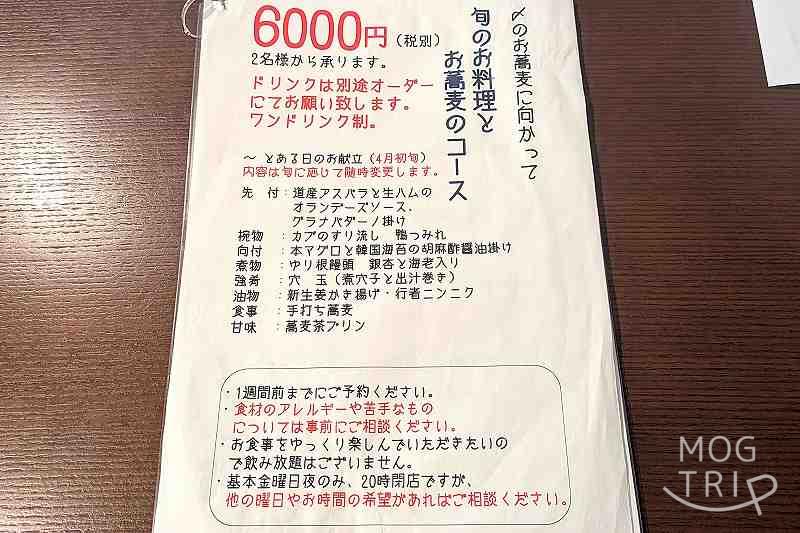 〆のお蕎麦に向かって
旬のお料理と
お蕎麦のコース
6000円(税別)
2名様から承ります。
ドリンクは別途オーダー
にてお願い致します。
ワンドリンク制。
〜 とある日のお献立(4月初旬)
内容は旬に応じて随時変更します。
先 付:道産アスパラと生ハムの
オランデーズソース.
グラナパダーノ掛け
椀物 :カブのすり流し 鴨つみれ
向付 :本マグロと韓国海苔の胡麻酢醤油掛け
煮物 :ゆり根饅頭 銀杏と海老入り
強肴 :穴 玉(煮穴子と出汁巻き)
油物 :新生姜かき揚げ・行者ニンニク
食事 :手打ち蕎麦
甘味 :蕎麦茶プリン
・1週間前までにご予約ください。
・食材のアレルギーや苦手なもの
については事前にご相談ください。
・お食事をゆっくり楽しんでいただきたいの
で飲み放題はございません。
・基本金曜日夜のみ、20時閉店ですが、
他の曜日やお時間の希望があればご相談ください。
MOG
TRIP